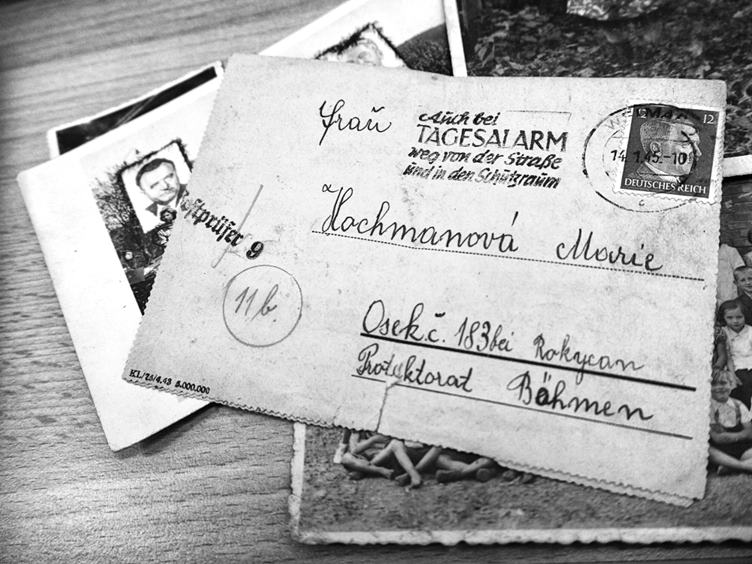 Frau
Auch bei
TAGESALARM
weg von der Straße
und in den Schutzraum
WEIMAR
14.1.45.-10
c
12
DEUTSCHES REICH
Postprüfer 9
Hochmanová Marie
11b.
Osek č. 183 bei Rokycan
Protektorat Böhmen
KL/26/4.43 5.000.000